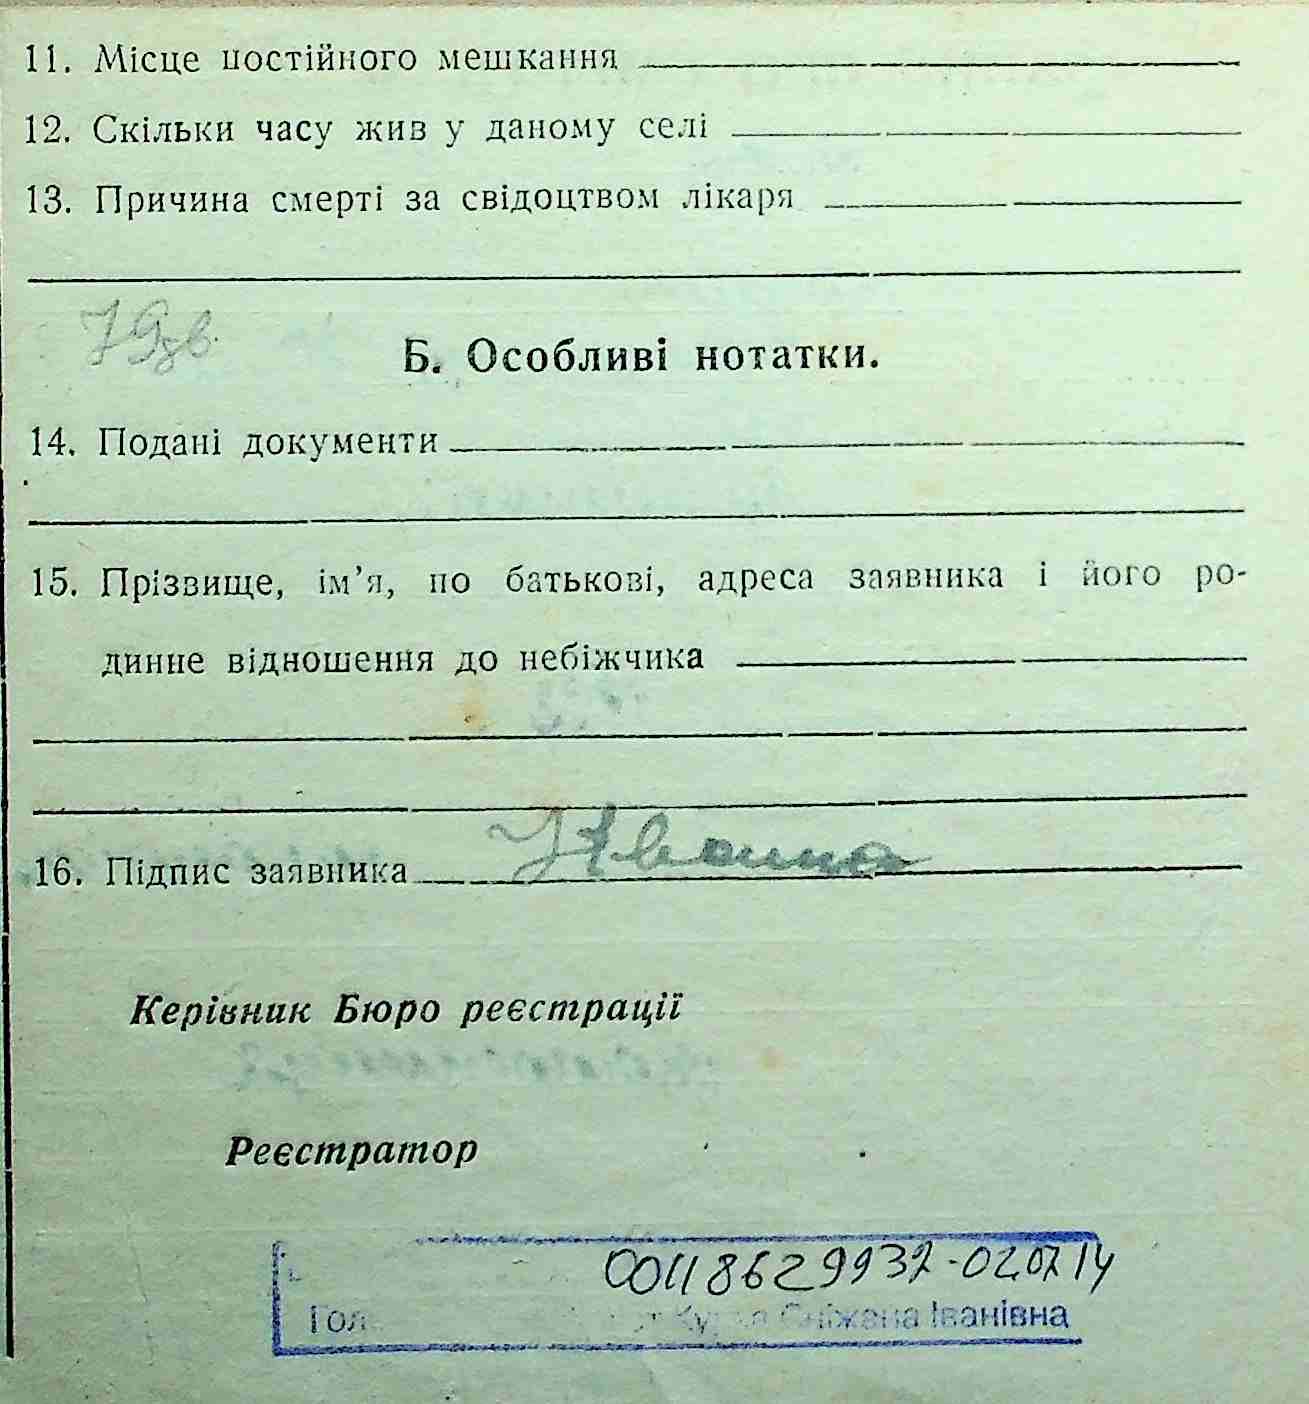 11. Місце постійного мешкання
12. Скільки часу жив у даному селі
13. Причина смерті за свідоцтвом лікаря
Б. Особливі нотатки.
14. Подані документи
15. Прізвище, ім’я, по батькові, адреса заявника і його ро-
динне відношення до небіжчика
16. Підпис заявника
Керівник Бюро реєстрації
Реєстратор
00118629932-02.07.14
Сніжана Іванівна